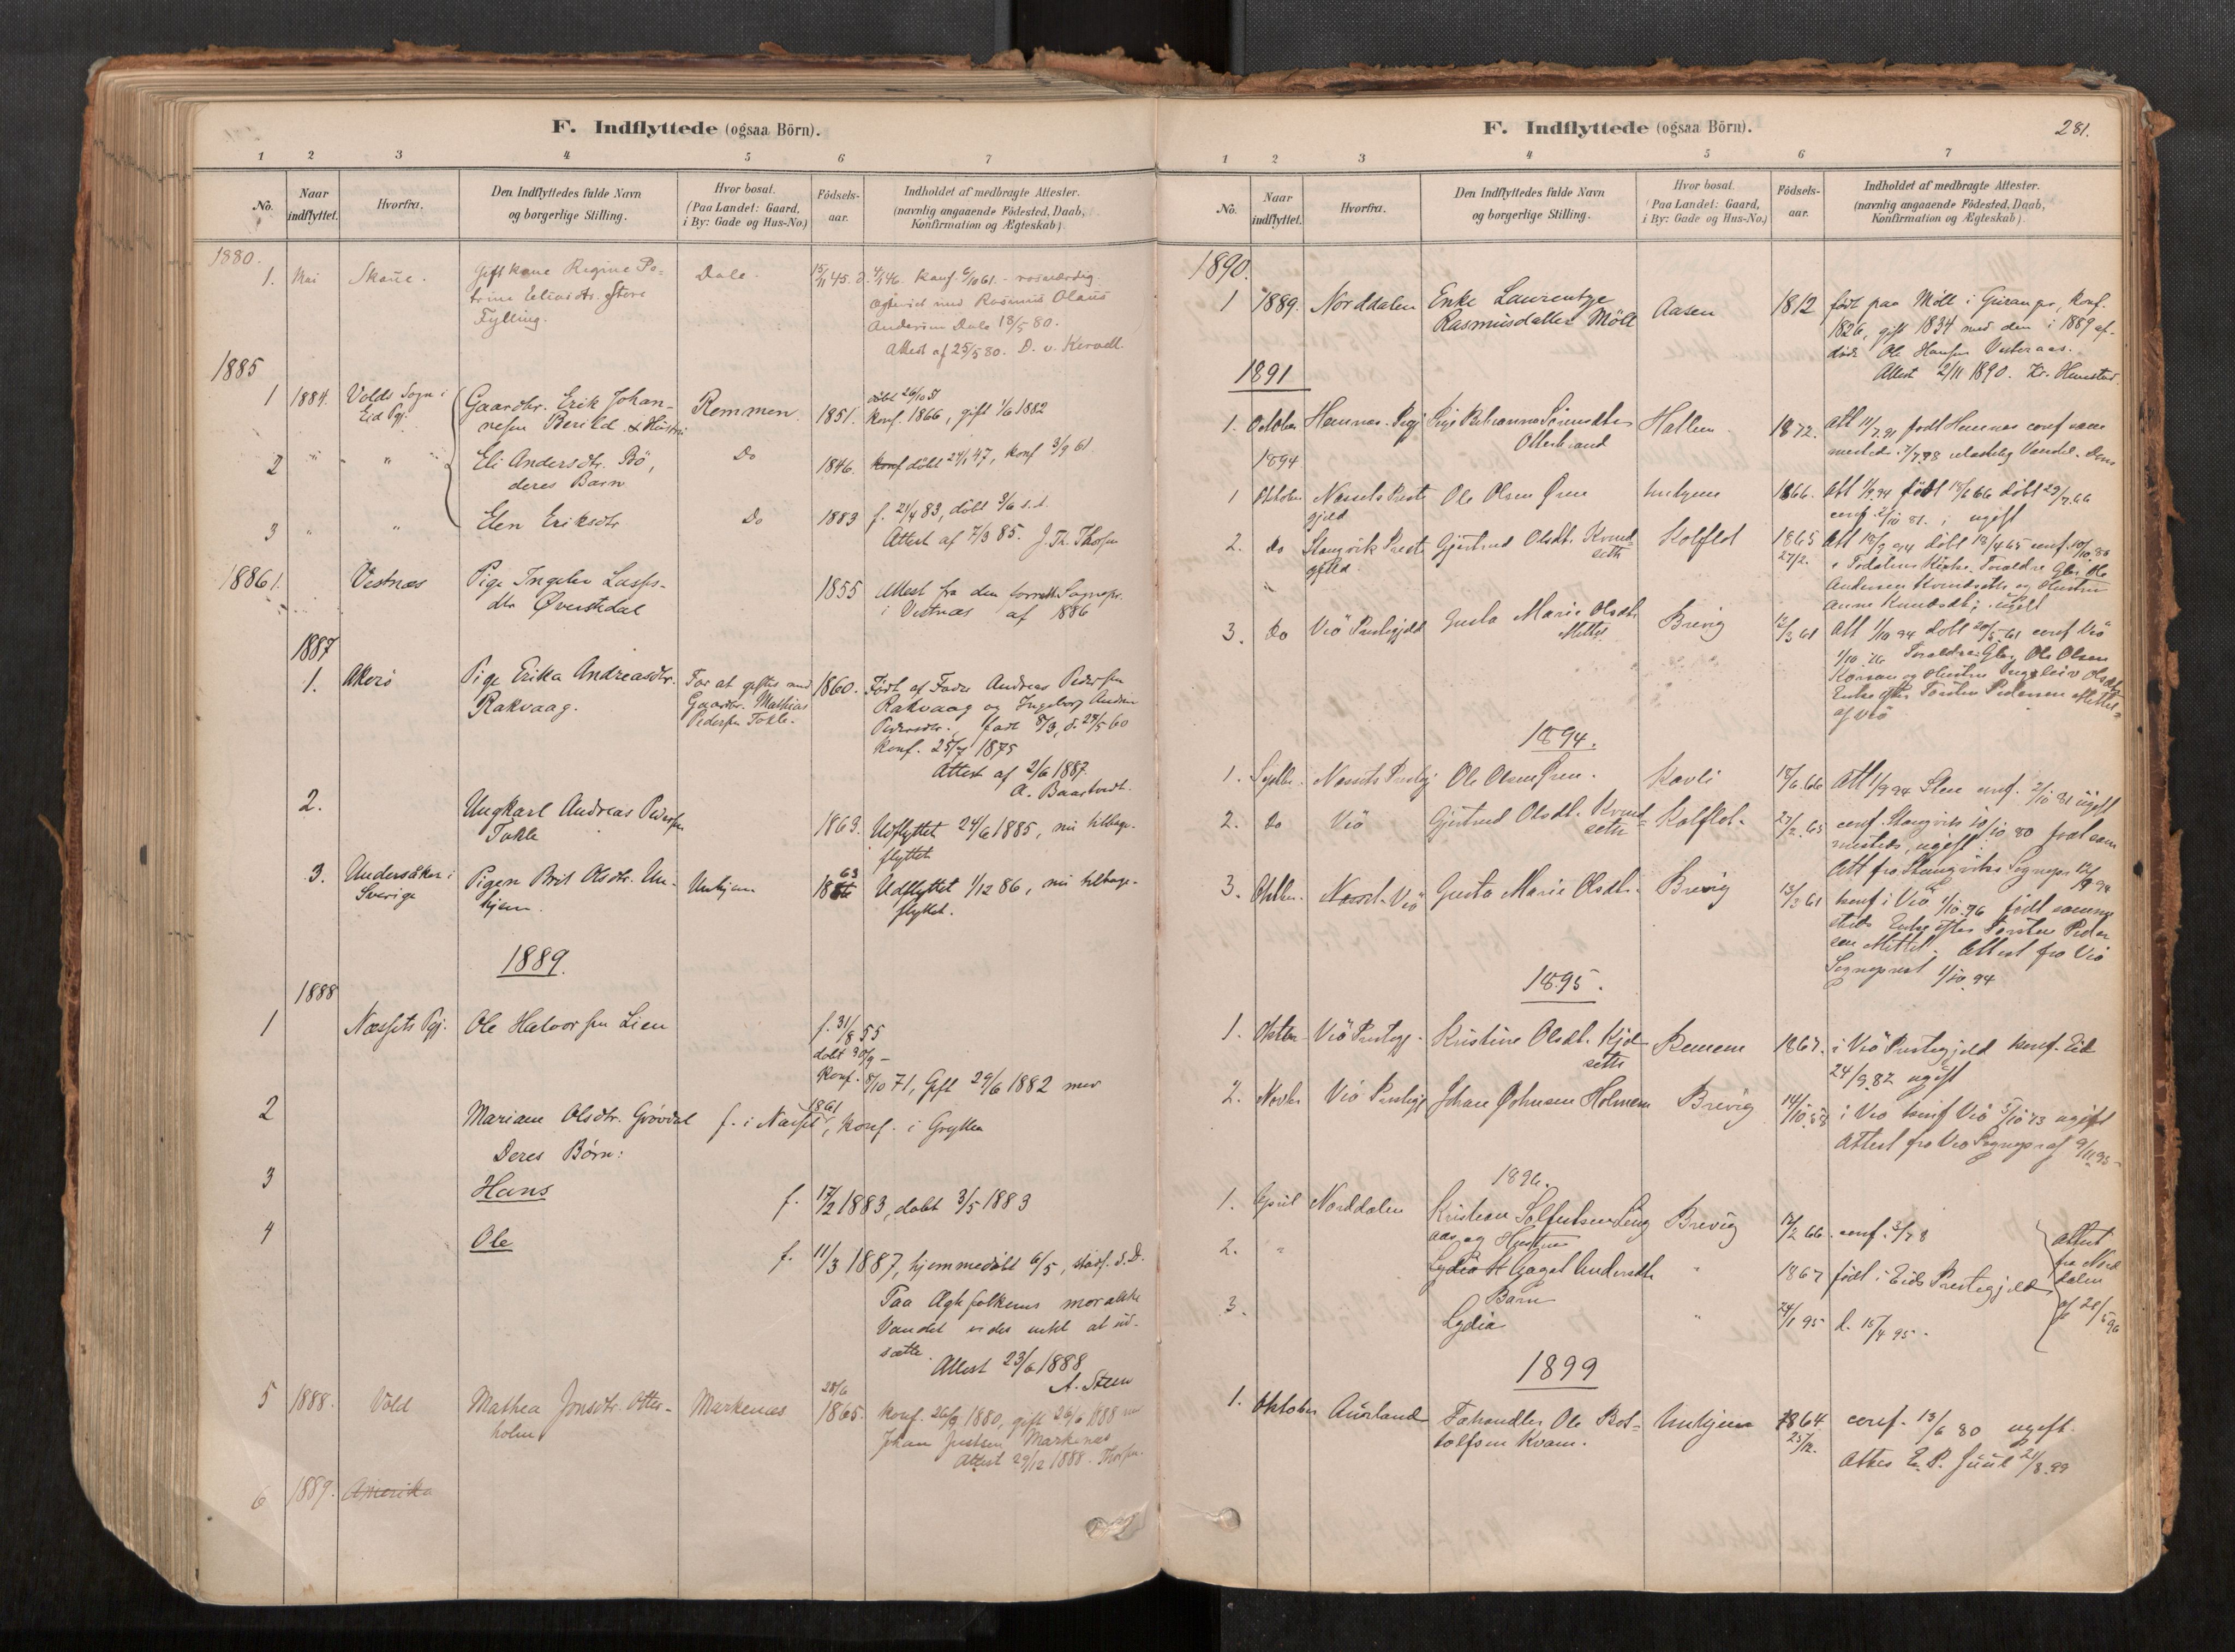 F. Indflyttede (ogsaa Börn).
1 2 3 4 5 6 7
No.
Naar indflyttet.
Hvorfra.
Den Indflyttedes fulde Navn og borgerlige Stilling.
Hvor bosat. (Paa Landet: Gaard, i By: Gade og Hus-No.)
Födsels-aar.
Indholdet af medbragte Attester. (navnlig angaaende Födested, Daab, Konfirmation og Ægteskab)
1880.
1. Mai Skaue. Gift Kone Regine Pe-
Dale. 15/11 45.
Fylling.
Andersen Dale 18/5 80.
Attest af 25/5 80.
1885
1 1884. Volds Sogn i
Eid Pgj.
Gaardbr. Erik Johan-
nesen Berild & Hustru
Remmen 1851. döbt 26/10 51
Konf. 1866, gift 1/6 1882
2 " " " Eli Andersdtr. Bö,
deres Barn
Do 1846. döbt 24/1 47, Konf 3/9 61
3 " " Elen Eriksdtr Do 1883 f. 21/4 83, döbt 3/6 s.d.
Attest af 7/3 85. J. Th. Thorsen
1886 1. Vestnæs Pige Ingeler Lasses-
dtr Øverstdal
1855 Attest fra den Sognepr.
i Vestnæs af 1886
1887
1. Akerö Pige Erika Andreasdtr.
Rakvaag.
For at giftes med
Gaardbr. Mathias
Pedersen Tokle.
1860. Födt af Fader Andreas Pedersen
Rakvaag og Ingeborg Andrea
Pedersdtr. födt 8/3, d. 28/5 60
Konf. 25/7 1875
Attest af 2/6 1887.
2. Ungkarl Andreas Pedersen
Tokle
1863. Udflyttet 24/6 1885, nu tilbage-
flyttet
3. Undersåker i
Sverige
Pigen Brit Olsdtr. Un-
hjem.
Unhjem 63 Udflyttet 1/12 86, nu tilbage-
flyttet.
1889.
1888
1 Næssets Pgj. Ole Halvorsen Lien f. 31/8 55
döbt 30/9 –
Konf. 8/10 71, Gift 29/6 1882 med
2 Mariane Olsdtr. Grövdal f. i Næsset 1861, Konf. i Grytten
Deres Børn:
3 Hans f. 17/2 1883, döbt 3/5 1883
4 Ole f. 11/3 1887, hjemmedöbt 6/5, stadf. s. D.
Paa Ægtefolkenes moralske
Vandel vides intet at ud-
sætte.
Attest 23/6 1888
A. Steen
5 1888. Vold Mathea Jonsdtr. Otter-
holm
Markenæs 28/6
1865. Konf. 26/9 1880, gift 26/6 1888 med
Johan Jentsen Markenæs
Attest 29/12 1888. Thorsen.
6 1889. Amerika
F. Indflyttede (ogsaa Börn).
281.
1 2 3 4 5 6 7
No.
Naar indflyttet.
Hvorfra.
Den Indflyttedes fulde Navn og borgerlige Stilling.
Hvor bosat. (Paa Landet: Gaard, i By: Gade og Hus-No.)
Födsels-aar.
Indholdet af medbragte Attester. (navnlig angaaende Födested, Daab, Konfirmation og Ægteskab)
1890.
1 1889. Norddalen Enke Laurentze
Rasmusdatter Möll
Aasen 1812 födt paa Möll i Geiranger, Konf.
1826, gift 1834 med den i 1889 af-
döde Ole Hansen Vesteraas.
Attest 2/11 1890.
1891
1. October Hemnæs Prgj Pige Petrianna Sörensdtr
Otterstrand
Hallem 1872. födt Hemnæs conf samme
1894
1 Oktober Næssets Prest
gjeld
Ole Olsen Øren Unhjem 1866. Att 1/9 94 födt 18/6 66 döbt 29/7 66
conf 2/10 81. ; ugift
2. Do Stangvik Prest
gjeld.
Gjertrud Olsdt. Kvend
seth
Kolflot 1865
27/2.
Att 18/9 94 döbt 18/4 65 conf. 10/10 80
i Todalens Kirke. Foraldre Gbr Ole
Andersen Kvendseth og Hustru
Anne Knudsdt; ugift
3. Do Veö Prestegjeld Gusta Marie Olsdt.
Mittet
Brevig 13/3 61 Att 1/10 94 döbt 20/5 61 conf Veö
Foraldre Gbr Ole Olsen
og Hustru
Enke efter Torsten Pedersen Mittet
af Veö
1894.
1. Septbr. Næssets Prestgj Ole Olsen Øren. Kavli 18/6. 66 Att 1/9 94 Steen conf. 2/10 81 ugift
2. Do Veö Gjertrud Olsdt. Kvend
seth
Kolflot. 27/2. 65 conf. Stangvik 10/10 80 födt sam
mesteds, ugift.
Att fra Stangviks Sognepr 18/9 94
3. Oktbr. Næsset Veö Gusta Marie Olsdt. Brevig 13/3 61 konf i Veö 1/10 76 födt samme
steds Enke efter Torsten Peder
sen Mittet. Attest fra Veö
Sogneprest 1/10 94
1895.
1. Oktbr Veö Prestegj. Kristine Olsdt. Kjöl
seth
Remem 1867. i Veö Prestegjeld konf. Eid
24/9 82 ugift
2. Novbr Veö Prestegj Johan Johnsen Holmem Brevig 14/10 58 i Veö konf Veö 5/10 73 ugift
Attest fra Veö Sognepr af 9/11 95
1896.
1. April Norddalen Kristian Solfestsen Ling
aas og Hustru
Brevig 12/2 66. conf.
2. " Lydia H Gagat Andersdt. " 1867 födt i Eids Prestegjeld
Barn
3. Lydia " 24/1 95 d. 15/4 95.
Attest
fra Nord
dalen
1899
1. Oktober Aurland Fæhandler Ole Bot-
tolfsen Kvam.
Unhjem 1864
25/12.
conf. 13/6 80 ugift.
Attes E. P. Juul 21/8. 99